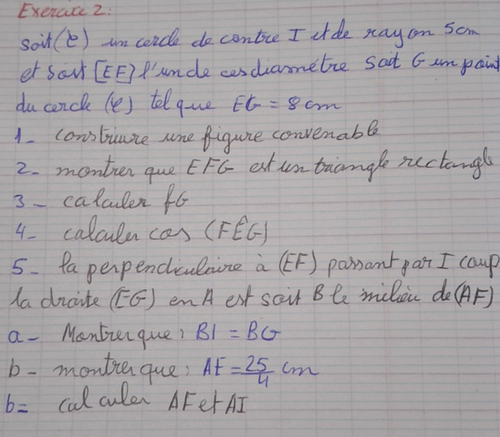 Exercice 2:
soit (C) un cercle de contre I et de rayon 5cm
et soit [EF] l'un de ces diamétre soit G un point
du cercle (C) tel que EG = 8cm
1- construire une figure convenable
2- montrer que EFG est un triangle rectangle
3- calculer fG
4- calculer cos (FÊG)
5- la perpendiculaire à (EF) passant par I coup
la droite (EG) en A est soit B le milieu de (AF)
a- Montrer que: BI = BG
b- montrer que: AE = 25/4 cm
b= calculer AF et AI